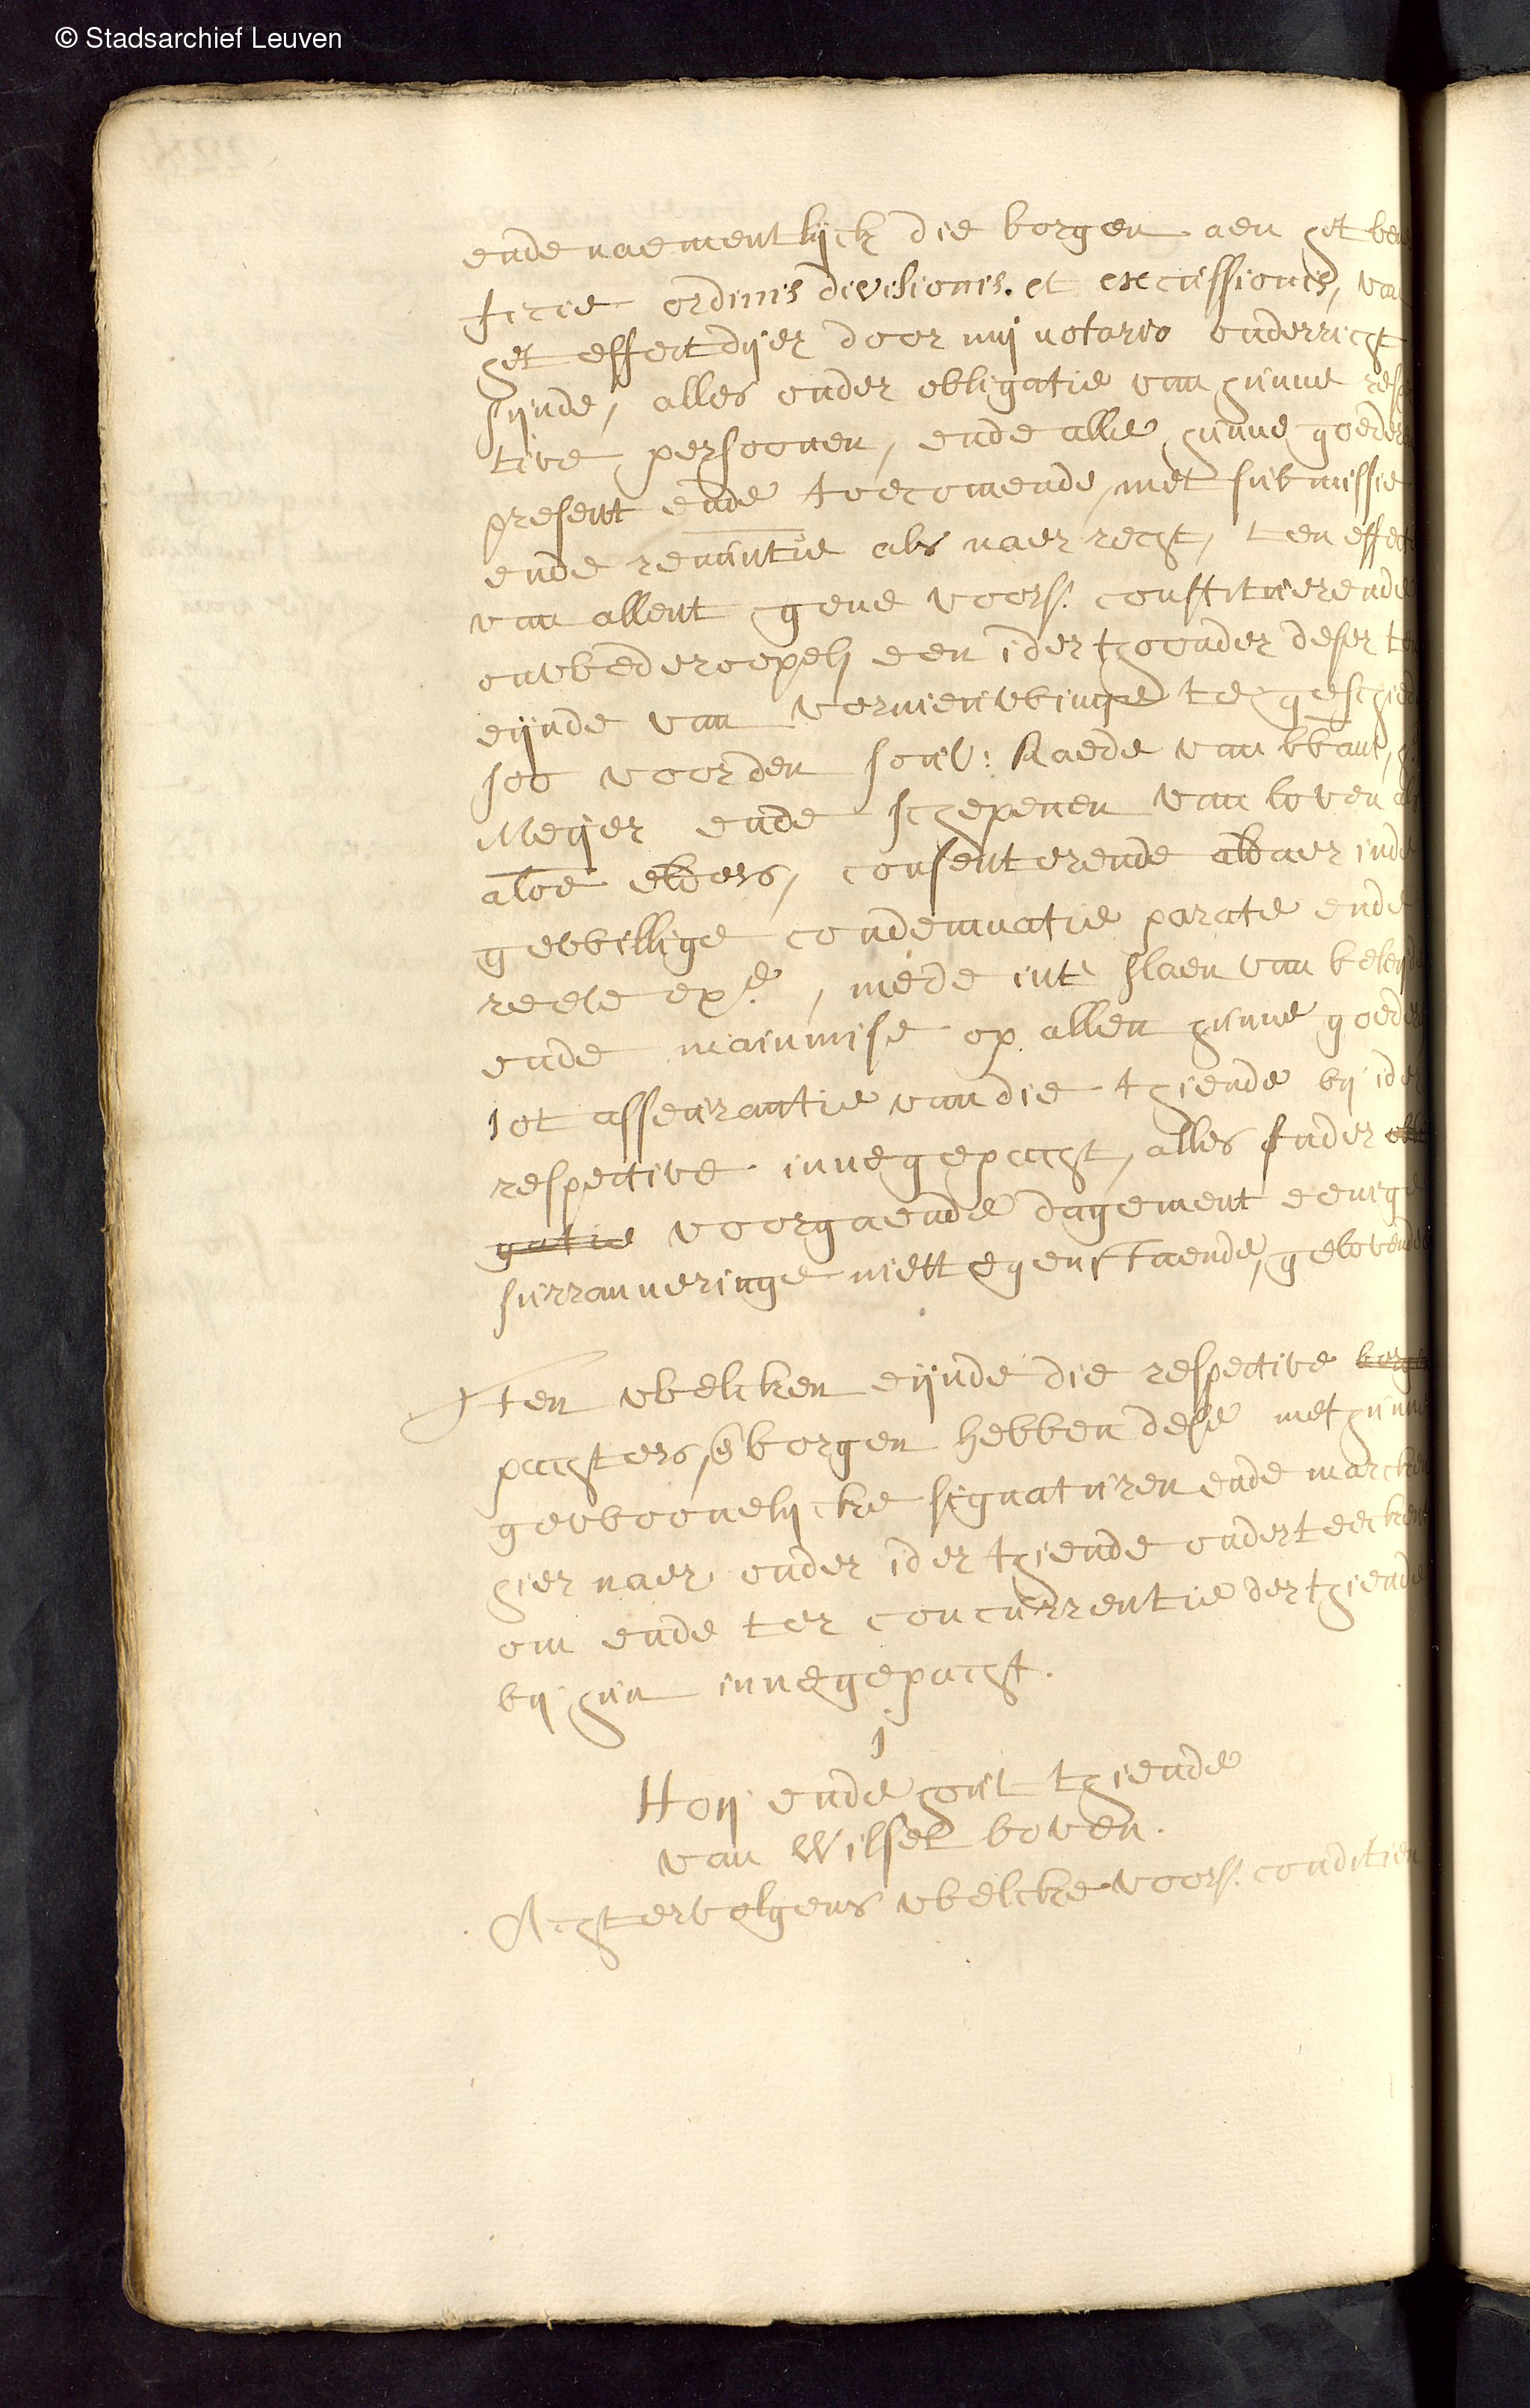 © Stadsarchief Leuven
ende naementlijck die borgen aen het bene
ficie ordinis divisionis et excussionis, van
het effect dijer door mij notario onderricht
sijnde, alles onder obligatie van hunne resp
tive persoonen, ende alle hunne goedere
present ende toecomende, met submissie
ende renuntie als naer recht, ten effecte
van allent gene voors. constituerende
onwederroepel: een ider thoonder deser ten
eijnde van vernieuwinge te geschieden
soo voorden souv: Raede van bbant,
Meijer ende schepenen van loven als
aloe elders, consenterende aldaer inde
gewillige condemnatie parate ende
reele exe, mede int slaen van beleyde
ende mainmise op allen hunne goedere
tot asseurantie van die thiende bij ider
respective innegepacht, alles sonder obli
gatie voorgaende dagement eenige
surranneringe niettegenstaende, gelovende
Ten welcken eijnde die respective borgen
pachters, e borgen hebben dese met hunne
gewoonelijcke signaturen ende marcken
hier naer onder ider thiende onderteeckent
om ende ter concurrentie der thiende
bij hun innegepacht.
1
Hoij ende hout thiende
van Wilsel boven.
Achtervolgens welcke voors. conditien